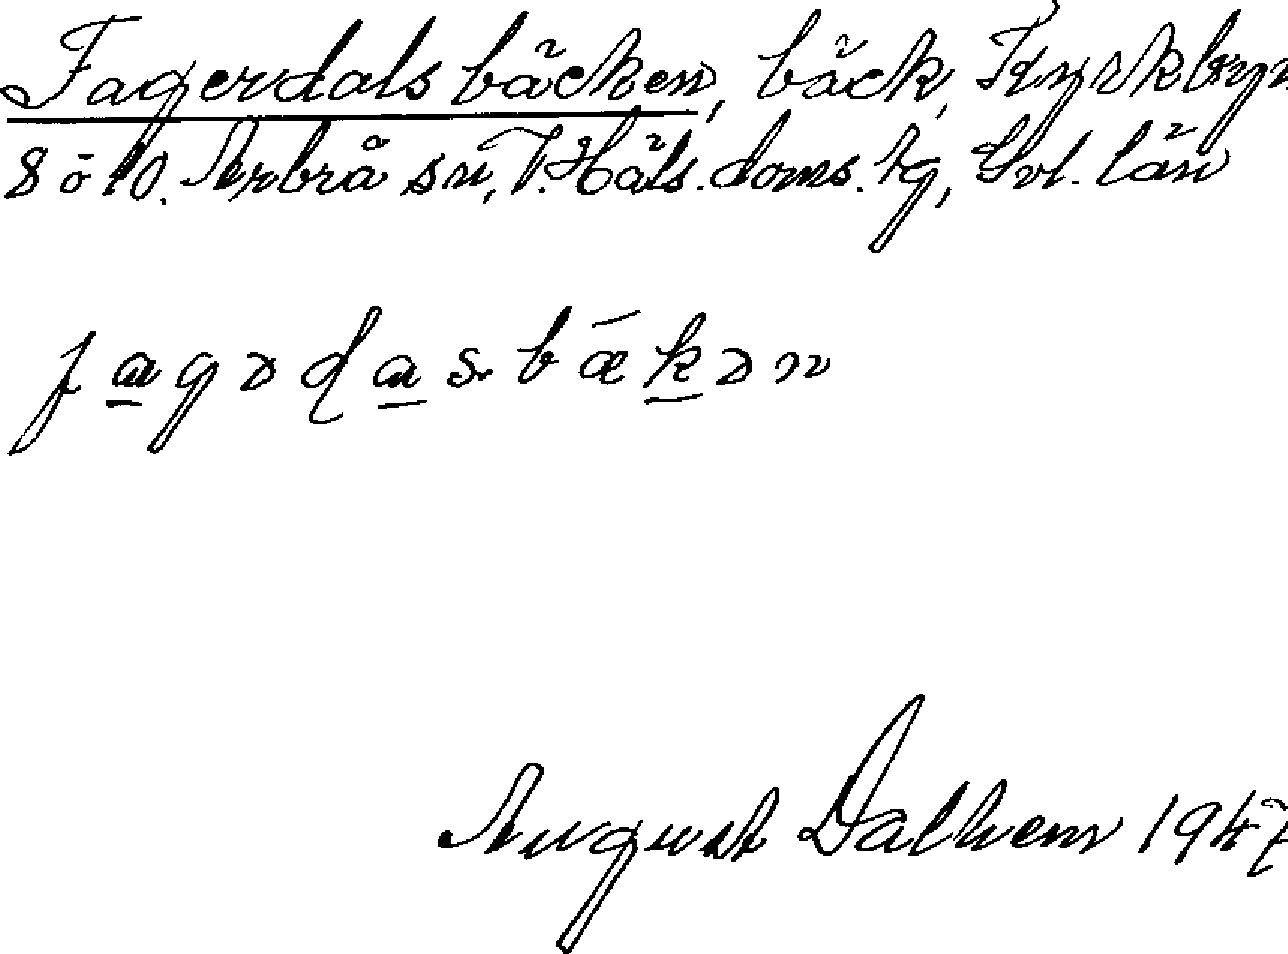 Fagerdalsbäcken, bäck, Kyrkbyn
8 o 10. Arbrå sn, V. Häls. doms. tg, Gvl. län
fagədasbækən
August Dalhem 1947